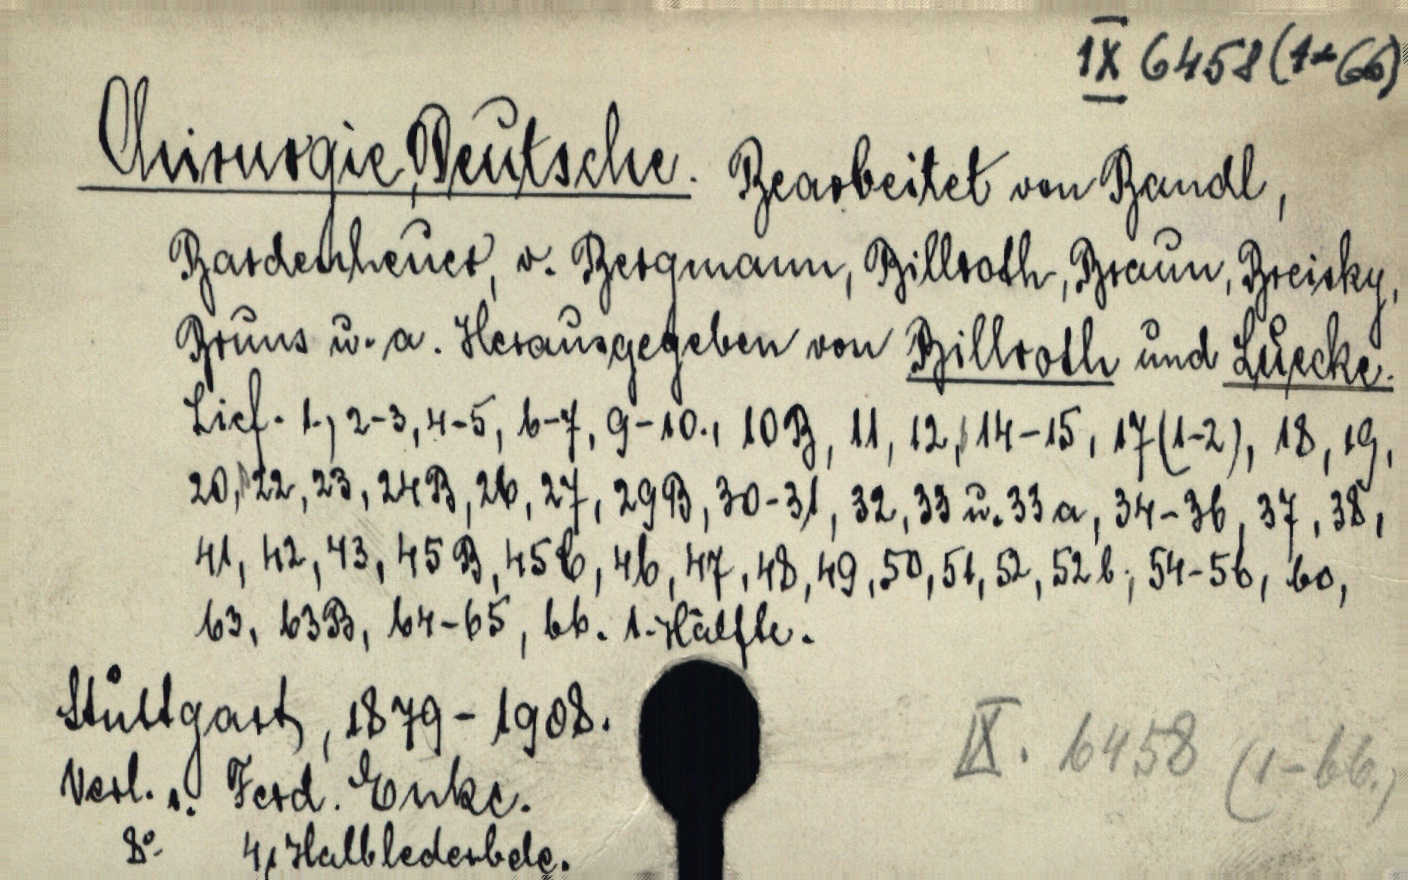 IX 6458 (1-66)
Chirurgie, Deutsche. Bearbeitet von Bandl,
Bardenheuer, v. Bergmann, Billroth, Braun, Breisky,
Bruns u. a. Herausgegeben von Billroth und Luecke.
Lief. 1, 2-3, 4-5, 6-7, 9-10., 10B, 11, 12, 14-15, 17(1-2), 18, 19,
20, 22, 23, 24B, 26, 27, 29B, 30-31, 32, 33 u. 33a, 34-36, 37, 38,
41, 42, 43, 45B, 45C, 46, 47, 48, 49, 50, 51, 52, 52b, 54-56, 60,
63, 63B, 64-65, 66. 1. Hälfte.
Stuttgart, 1879-1908.
Verl. v. Ferd. Enke.
IX. 6458 (1-66.)
8° 4, Halblederbde.